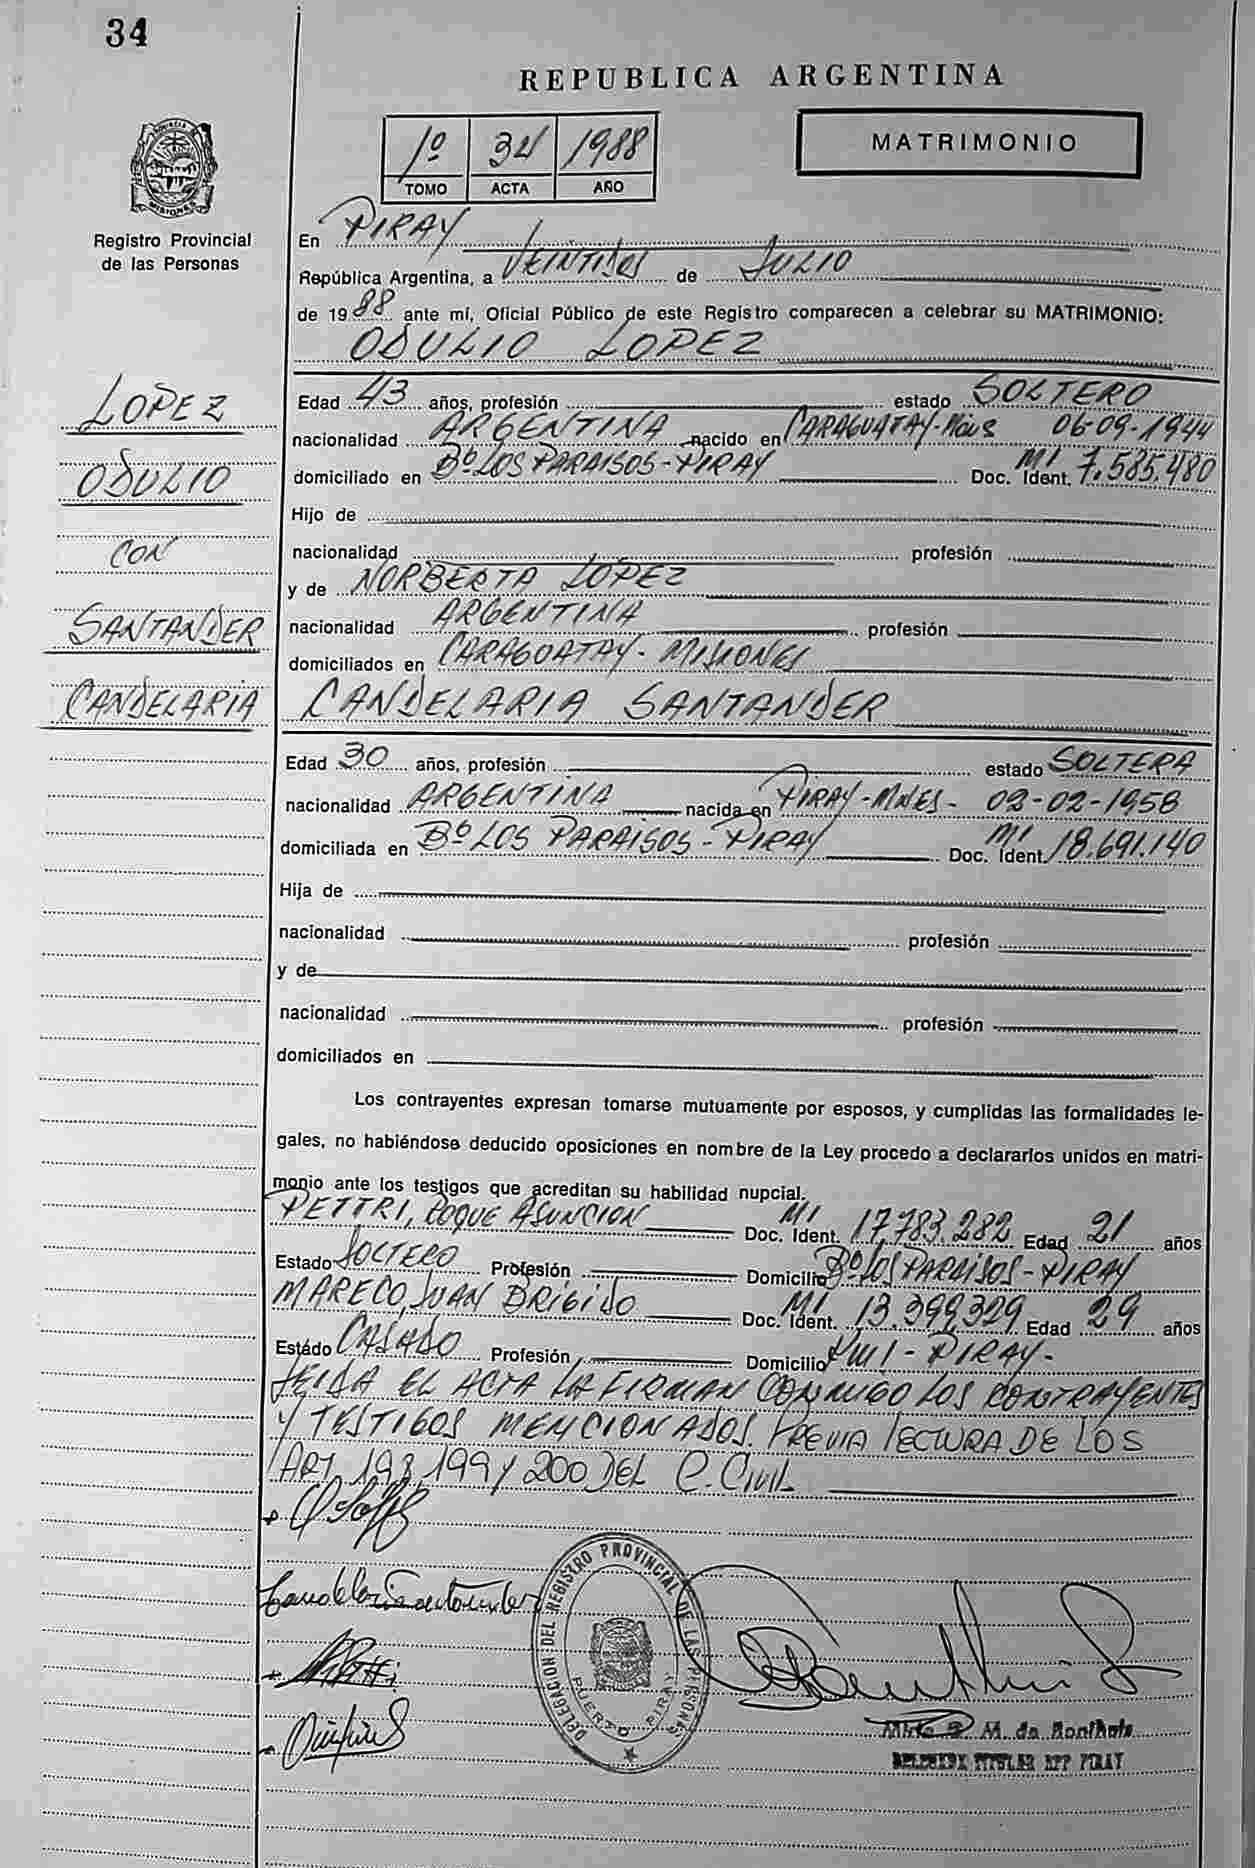 34
REPUBLICA ARGENTINA
1º 34 1988
TOMO ACTA AÑO
MATRIMONIO
PROVINCIA
MISIONES
Registro Provincial
de las Personas
En PIRAY
República Argentina, a VEINTIDOS de JULIO
de 1988 ante mí, Oficial Público de este Registro comparecen a celebrar su MATRIMONIO:
ODULIO LOPEZ
LOPEZ
ODULIO
CON
SANTANDER
CANDELARIA
Edad 43 años, profesión estado SOLTERO
nacionalidad ARGENTINA nacido en CARAGUATAY-Mnes 06-09-1944
domiciliado en Bº LOS PARAISOS-PIRAY Doc. Ident. MI 7.585.480
Hijo de
nacionalidad profesión
y de NORBERTA LOPEZ
nacionalidad ARGENTINA profesión
domiciliados en CARAGUATAY-MISIONES
CANDELARIA SANTANDER
Edad 30 años, profesión estado SOLTERA
nacionalidad ARGENTINA nacida en PIRAY-MNES- 02-02-1958
domiciliada en Bº LOS PARAISOS-PIRAY Doc. Ident. MI 18.691.140
Hija de
nacionalidad profesión
y de
nacionalidad profesión
domiciliados en
Los contrayentes expresan tomarse mutuamente por esposos, y cumplidas las formalidades le-
gales, no habiéndose deducido oposiciones en nombre de la Ley procedo a declararlos unidos en matri-
monio ante los testigos que acreditan su habilidad nupcial.
PETTRI, ROQUE ASUNCION Doc. Ident. MI 17.783.282 Edad 21 años
Estado SOLTERO Profesión Domicilio Bº LOS PARAISOS-PIRAY
MARECO, JUAN BRIGIDO Doc. Ident. MI 13.399.329 Edad 29 años
Estado CASADO Profesión Domicilio KM 1-PIRAY-
LEIDA EL ACTA LA FIRMAN CONMIGO LOS CONTRAYENTES
Y TESTIGOS MENCIONADOS. PREVIA LECTURA DE LOS
ART. 198, 199 Y 200 DEL C. CIVIL
Candelaria Santander
DELEGACION DEL REGISTRO PROVINCIAL DE LAS PERSONAS
PUERTO PIRAY
M. de
TITULAR RPP PIRAY